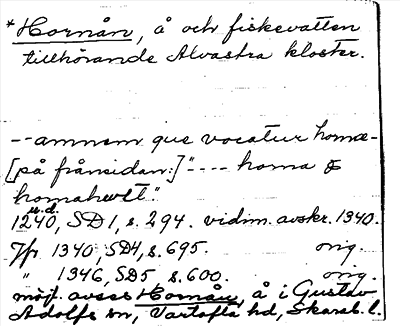 *Hornån, å och fiskevatten
tillhörande Alvastra kloster.
--amnem que vocatur hornæ-
[på frånsidan:]"---- horna &
hornahult."
u.d.
1240, SD1, s. 294. vidim. avskr. 1340.
Jfr 1340, SD4, s. 695. orig.
" 1346, SD5 s. 600. orig.
möjl. avses Hornån, å i Gustav
Adolfs sn, Vartofta hd, Skarab. l.